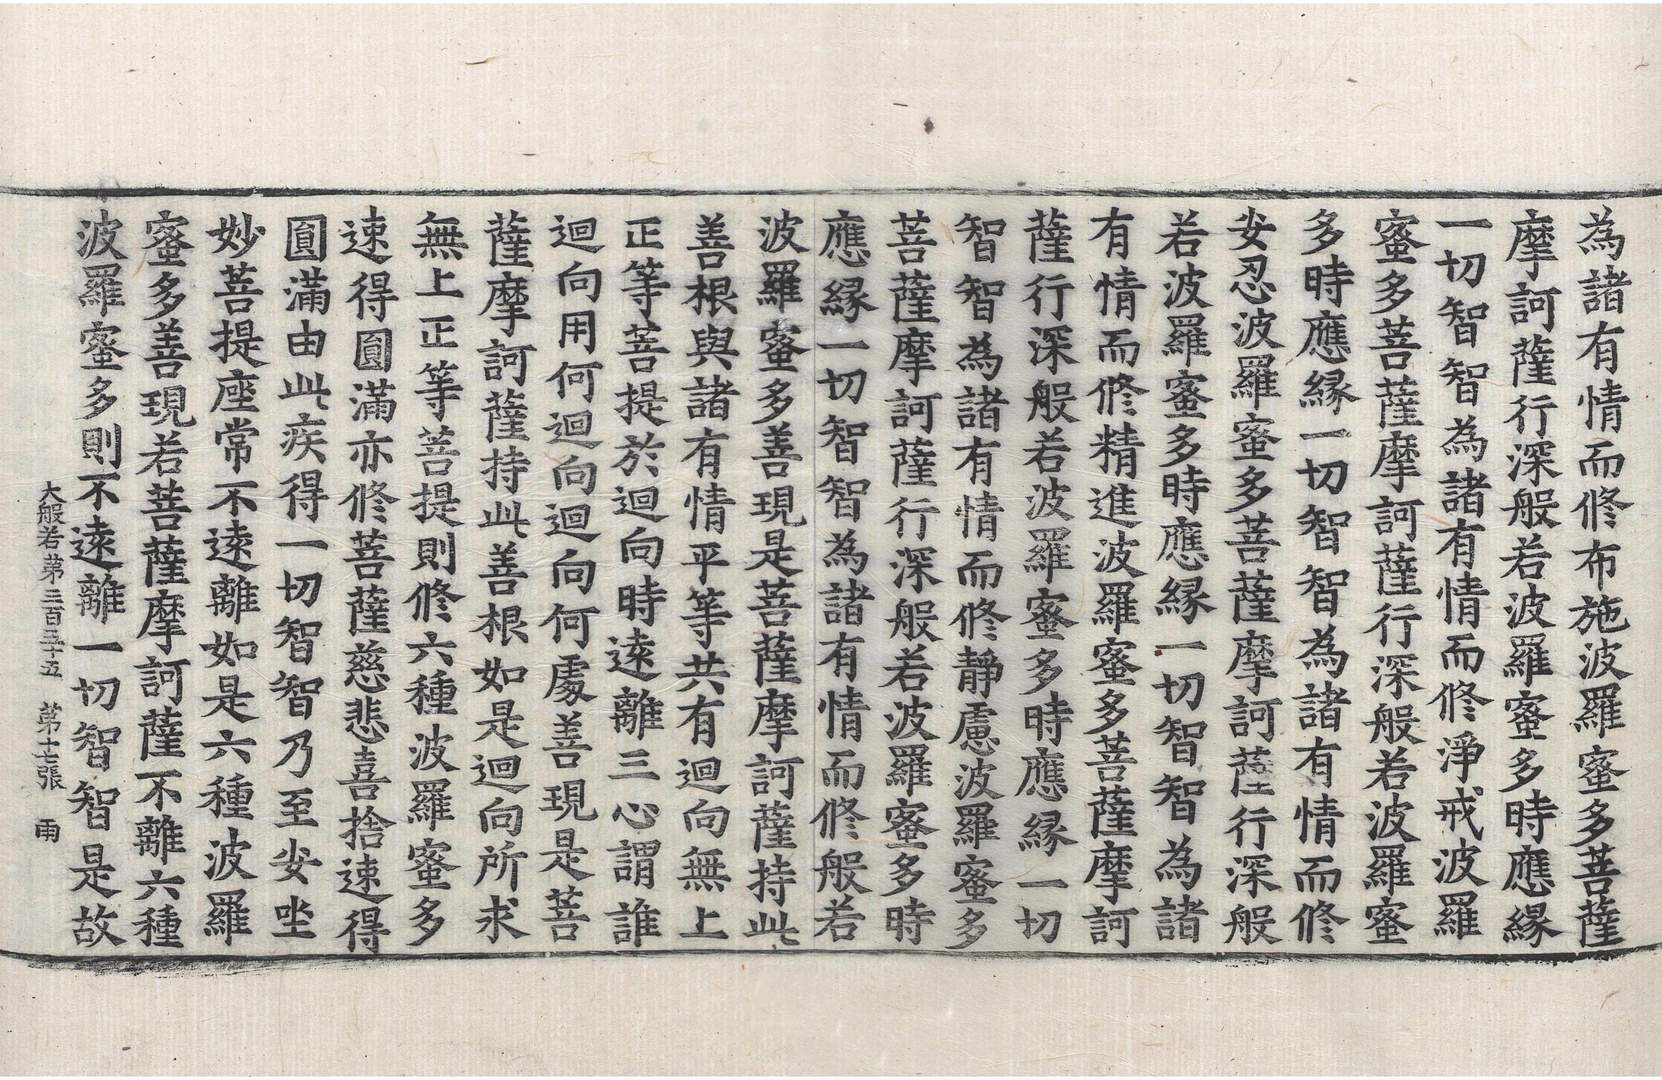 為諸有情而修布施波羅蜜多菩薩
摩訶薩行深般若波羅蜜多時應縁
一切智智為諸有情而修淨戒波羅
蜜多菩薩摩訶薩行深般若波羅蜜
多時應縁一切智智為諸有情而修
安忍波羅蜜多菩薩摩訶薩行深般
若波羅蜜多時應縁一切智智為諸
有情而修精進波羅蜜多菩薩摩訶
薩行深般若波羅蜜多時應縁一切
智智為諸有情而修靜慮波羅蜜多
菩薩摩訶薩行深般若波羅蜜多時
應縁一切智智為諸有情而修般若
波羅蜜多善現是菩薩摩訶薩持此
善根與諸有情平等共有迴向無上
正等菩提於迴向時遠離三心謂誰
迴向用何迴向迴向何處善現是菩
薩摩訶薩持此善根如是迴向所求
無上正等菩提則修六種波羅蜜多
速得圓滿亦修菩薩慈悲喜捨速得
圓滿由此疾得一切智智乃至安坐
妙菩提座常不遠離如是六種波羅
蜜多善現若菩薩摩訶薩不離六種
波羅蜜多則不遠離一切智智是故
大般若第三百三十五 第十七張 雨